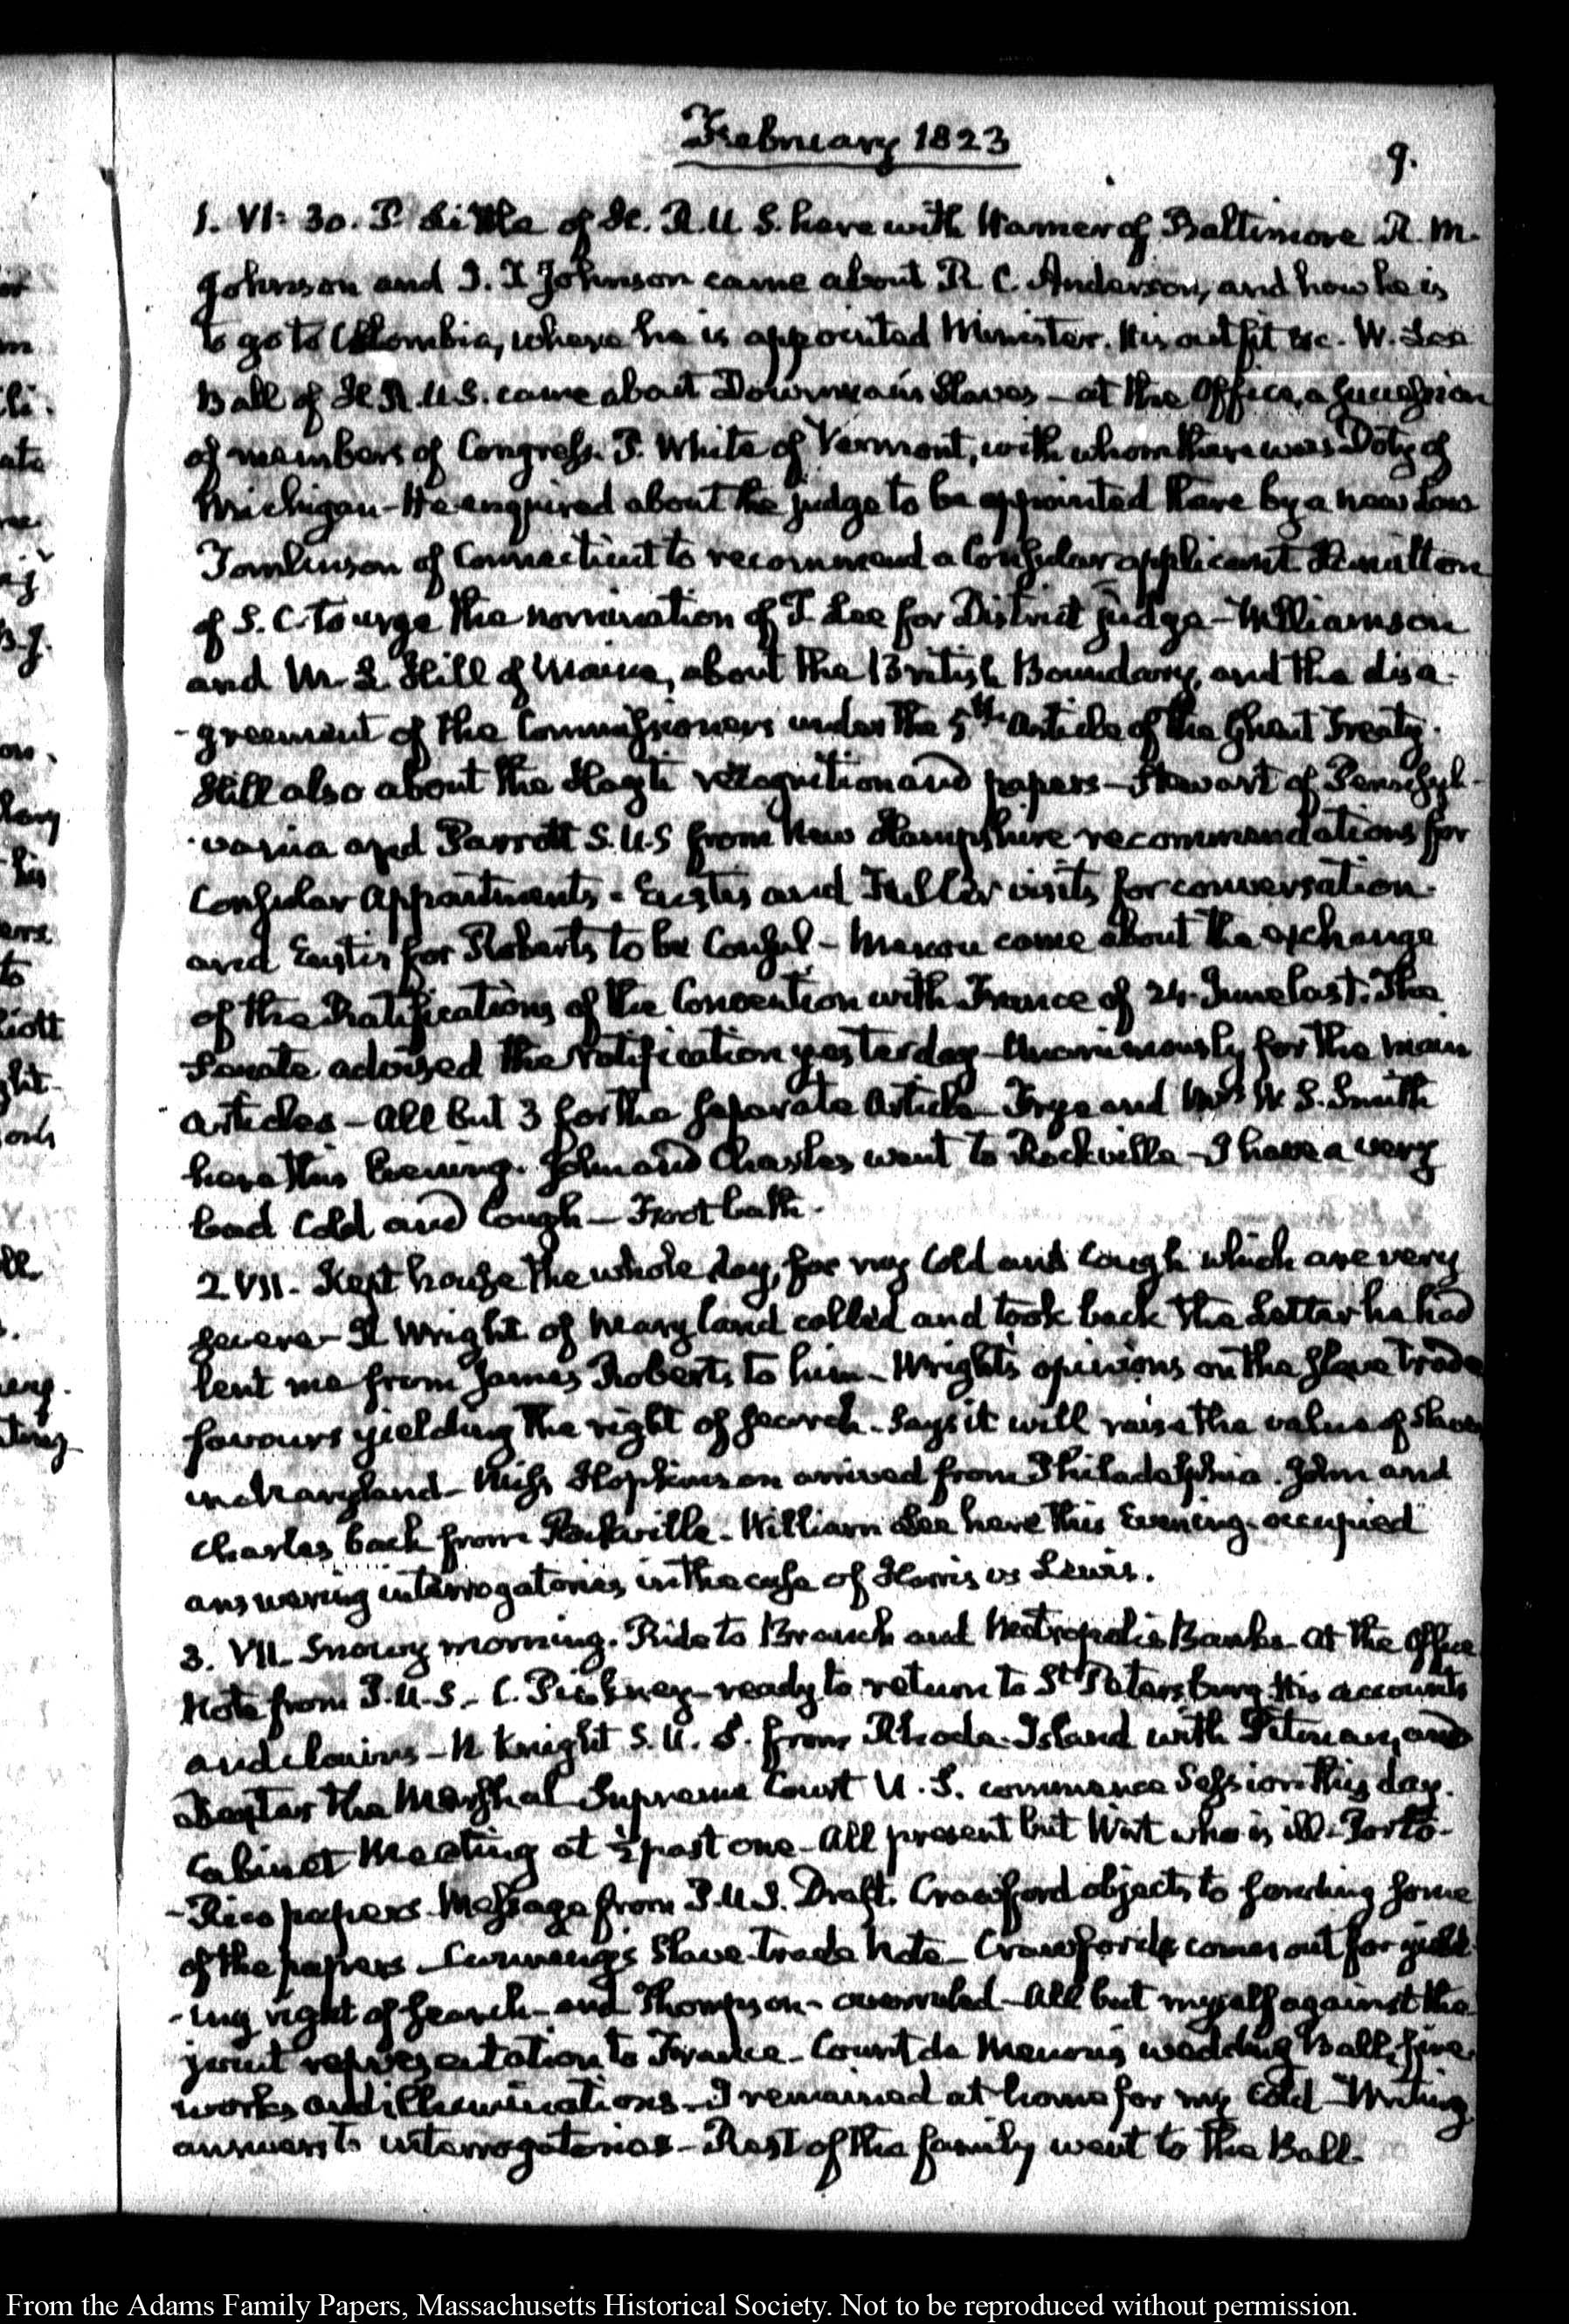 February 1823
9.
1. VI: 30. P. Little of H. R. U S. here with Warner of Baltimore R. M.
Johnson and J. T Johnson came about R C. Anderson, and how he is
to go to Colombia, where he is appointed Minister. His outfit &c. W. Lee
Ball of H R. U.S. came about Downman's Slaves — at the Office, a succession
of members of Congress. P. White of Vermont, with whom there was Doty of
Michigan — He enquired about the judge to be appointed there by a new Law
Tomlinson of Connecticut to recommend a Consular applicant Hamilton
of S. C. to urge the nomination of T. Lee for District judge — Williamson
and M. L. Hill of Maine, about the British Boundary, and the disa-
-greement of the Commissioners under the 5th Article of the Ghent Treaty.
Hill also about the Hayti recognition and papers — Stewart of Pennsyl-
-vania and Parrott S. U.S from New Hampshire recommendations for
Consular Appointments. Eustis and Fuller visits for conversation
and Eustis for Roberts to be Consul — Menou came about the exchange
of the Ratifications of the Convention with France of 24. June last. The
Senate advised the ratification yesterday — Unanimously for the main
articles — All but 3 for the separate Article — Frye and Mrs W. S. Smith
here this Evening. John and Charles went to Rockville — I have a very
bad Cold and Cough — Foot bath.
2. VII. Kept house the whole day, for my Cold and Cough which are very
severe — R Wright of Maryland called and took back the Letter he had
lent me from James Roberts to him — Wright's opinions on the slave trade
favours yielding the right of search. Says it will raise the value of Slaves
in Maryland — Miss Hopkinson arrived from Philadelphia. John and
Charles back from Rockville — William Lee here this Evening. occupied
answering interrogatories in the case of Harris vs Lewis.
3. VII. Snowy morning. Ride to Branch and Metropolis Banks — at the Office
Note from P. U. S. — C. Pinkney — ready to return to St Petersburg. His accounts
and claims — N Knight S. U. S. from Rhode-Island with Pitman, and
Dexter the Marshal Supreme Court U. S. commence Session this day.
Cabinet Meeting at ½ past one — All present but Wirt who is ill — Porto-
-Rico papers — Message from P. U. S. Draft. Crawford objects to sending some
of the papers — Canning's Slave trade Note — Crawford comes out for yield-
-ing right of search — and Thompson — overruled — All but myself against the
joint representation to France — Count de Menou's wedding Ball, fire-
works and illuminations — I remained at home for my Cold — Writing
answers to interrogatories — Rest of the family went to the Ball.
From the Adams Family Papers, Massachusetts Historical Society. Not to be reproduced without permission.